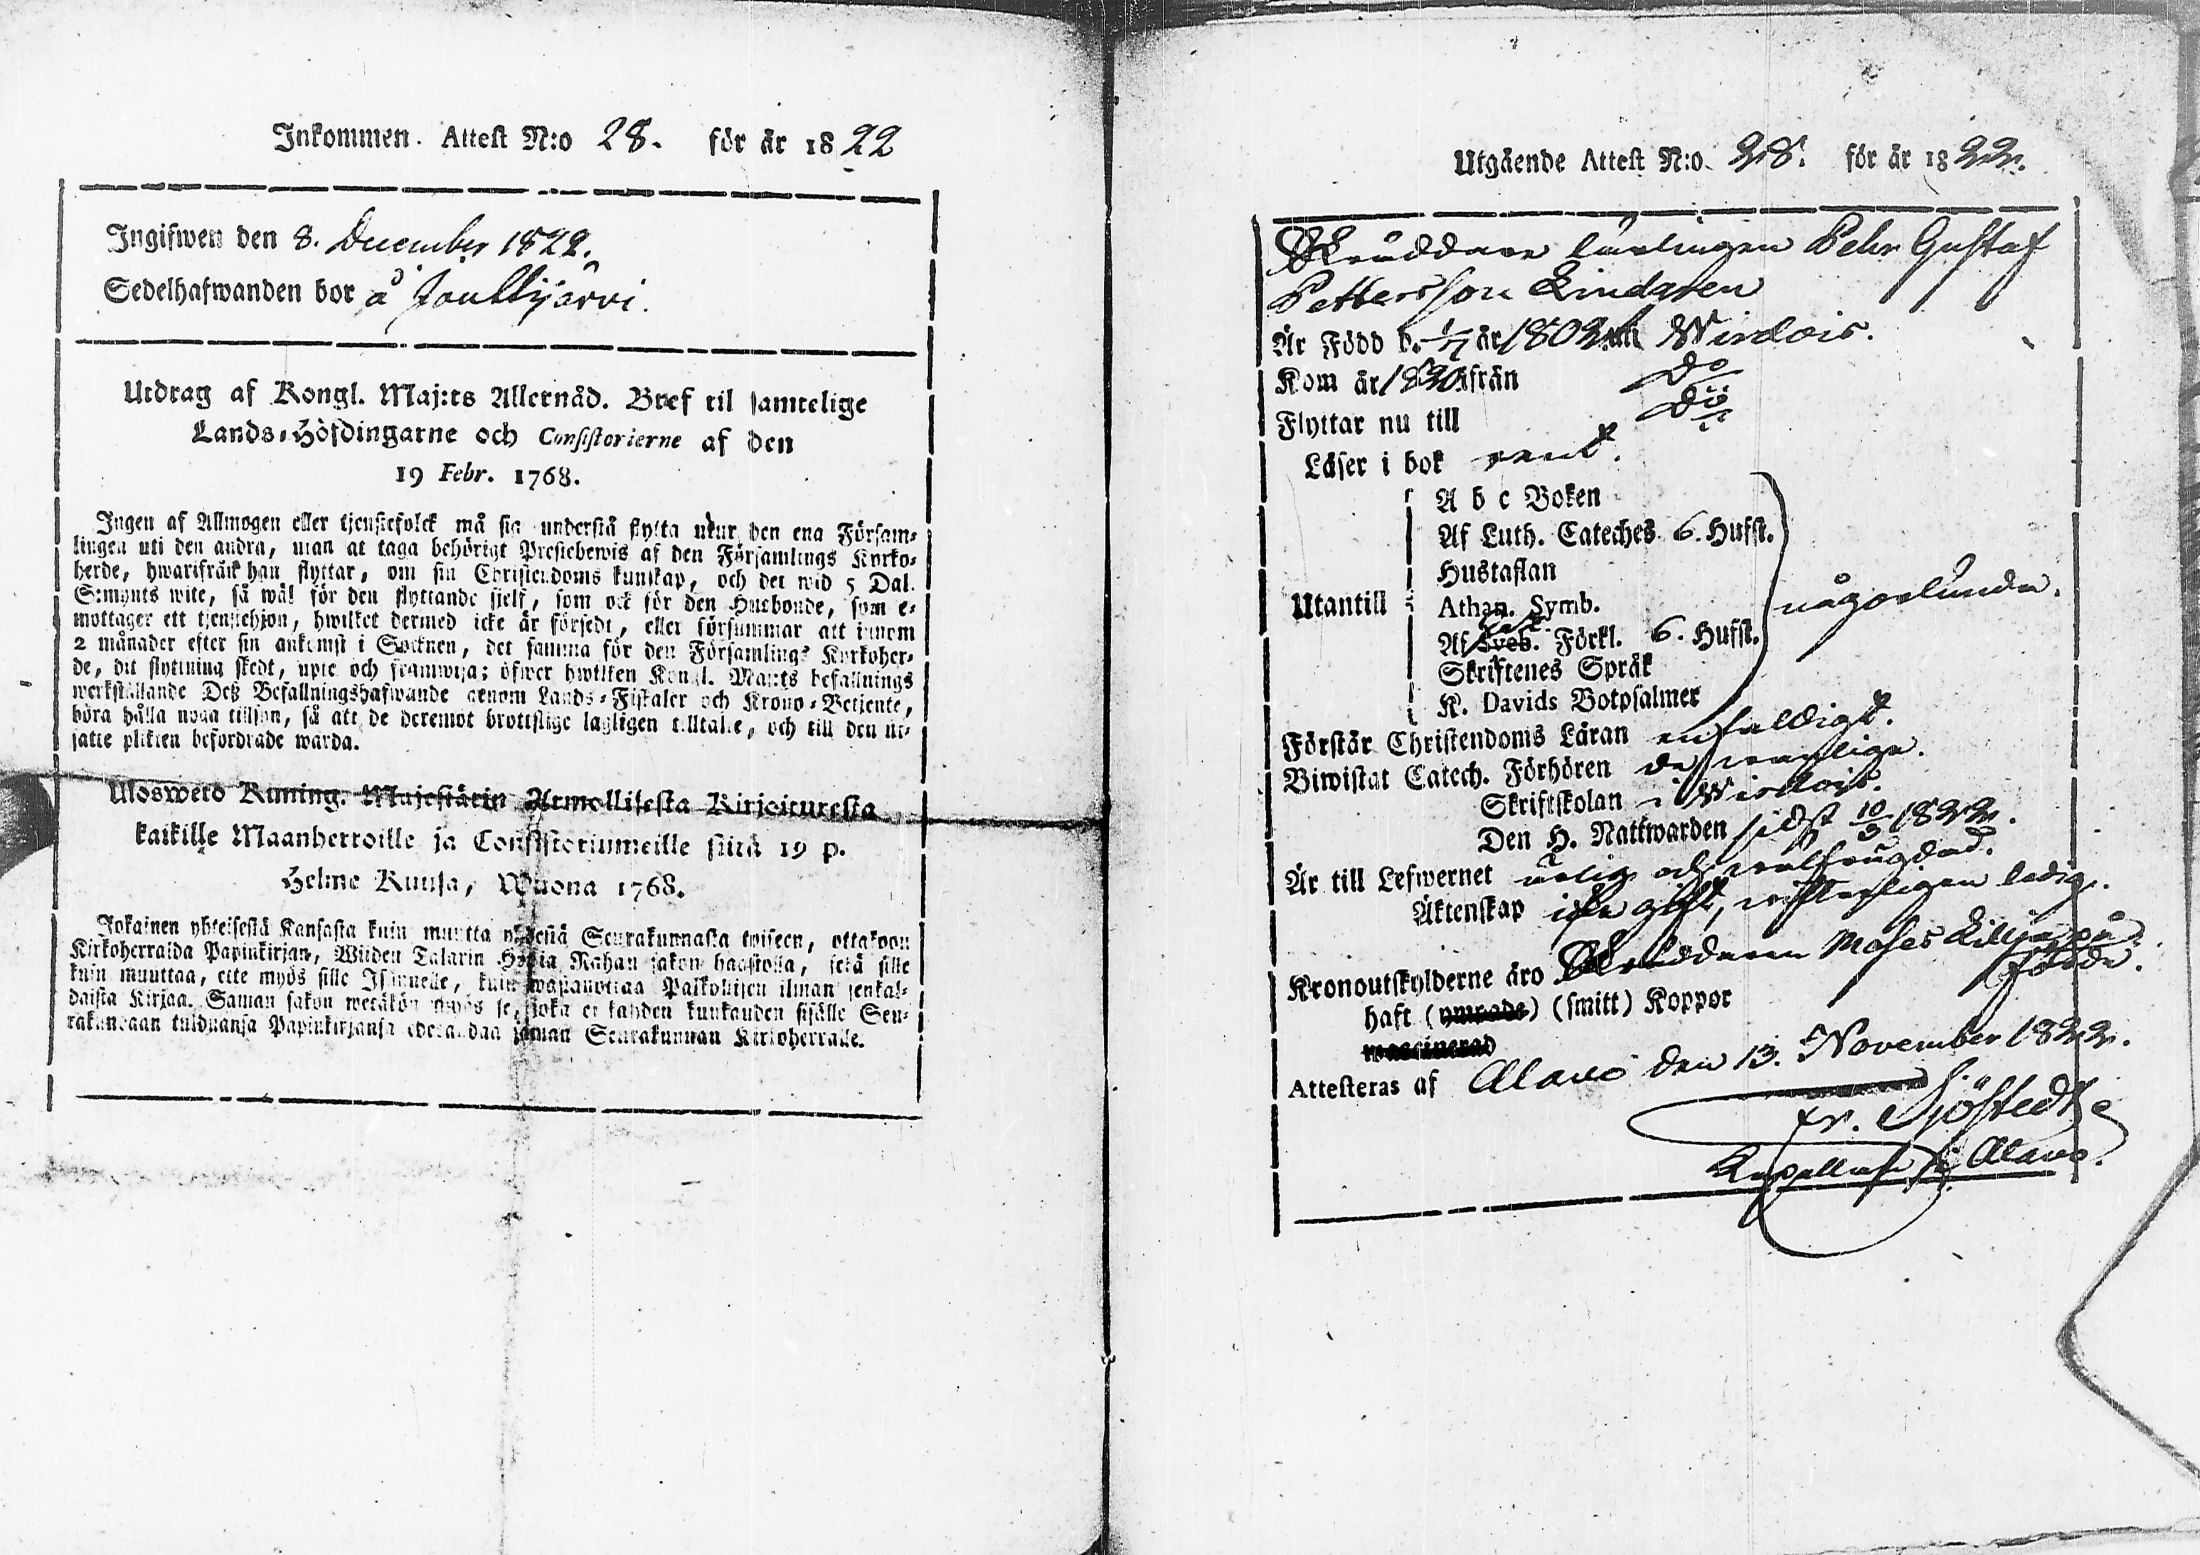 Inkommen. Attest N:o 28. för år 1822
Ingifwen den 8. December 1822.
Sedelhafwanden bor å Jouttijärvi.
Utdrag af Kongl. Maj:ts Allernåd. Bref til samtelige
Lands-Höfdingarne och Consistorierne af den
19 Febr. 1768.
Ingen af Allmogen eller tjenstefolck må sig understå flytta utur den ena Försam-
lingen uti den andra, utan at taga behörigt Prestebewis af den Församlings Kyrko-
herde, hwarifrån han flyttar, om sin Christendoms kunskap, och det wid 5 Dal.
S:mynts wite, så wäl för den flyttande sjelf, som ock för den Husbonde, som e-
mottager ett tjenstehjon, hwilket dermed icke är försedt, eller försummar att innom
2 månader efter sin ankomst i Socknen, det samma för den Församlings Kyrkoher-
de, dit flyttning skedt, upte och framwisa; öfwer hwilken Kongl. Maj:ts befallnings
werkställande Deß Befallningshafwande genom Lands-Fiskaler och Krono-Betjente,
böra hålla noga tillsyn, så att de deremot brottslige lagligen tilltalte, och till den ut-
satte plikten befordrade warda.
Uloswetö Kuning. Majestätin Armollisesta Kirjoituresta
kaikille Maanherroille ja Consistoriumeille siitä 19 p.
Helme Kuusa, Wuona 1768.
Jokainen yhteisestä Kansasta kuin muutta yhdestä Seurakunnasta toiseen, ottakoon
Kirkoherralda Papinkirjan, Wiiden Talarin Hopia Rahan sakon haastolla, sekä sille
kuin muuttaa, ette myös sille Isännelle, kuin wastanottaa Palkollisen ilman senkal-
daista Kirjaa. Saman sakon wetäkön myös se, joka ei kahden kuukauden sisälle Seu-
rakundaan tulduansa Papinkirjansa edesandaa saman Seurakunnan Kirkoherralle.
Utgående Attest N:o 28. för år 1822.
Skräddare lärlingen Pehr Gustaf
Pettersson Lindgren
Är Född d. 1/7 år 1802 uti Wirdois.
Kom år 1820 ifrån Do
Flyttar nu till Do
Läser i bok rent.
A b c Boken
Af Luth. Cateches 6. Hufst.
Hustaflan
Utantill Athan. Symb. någorlunda.
Af Sveb. Förkl. 6. Hufst.
Skriftenes Språk
K. Davids Botpsalmer
Förstår Christendoms Läran enfaldigt.
Biwistat Catech. Förhören de wanliga.
Skriftskolan i Wirdois.
Den H. Nattwarden sidst 10/3 1822.
Är till Lefwernet ärlig och wälfrägdad.
Äktenskap icke gift, wisterligen ledig.
Kronoutskylderne äro Skräddaren Moses påförde.
haft (ympade) (smitt) Koppor
waccinerad
Attesteras af Alavo den 13. November 1822.
Fr. Sjöstedt
Kapellan i Alavo.